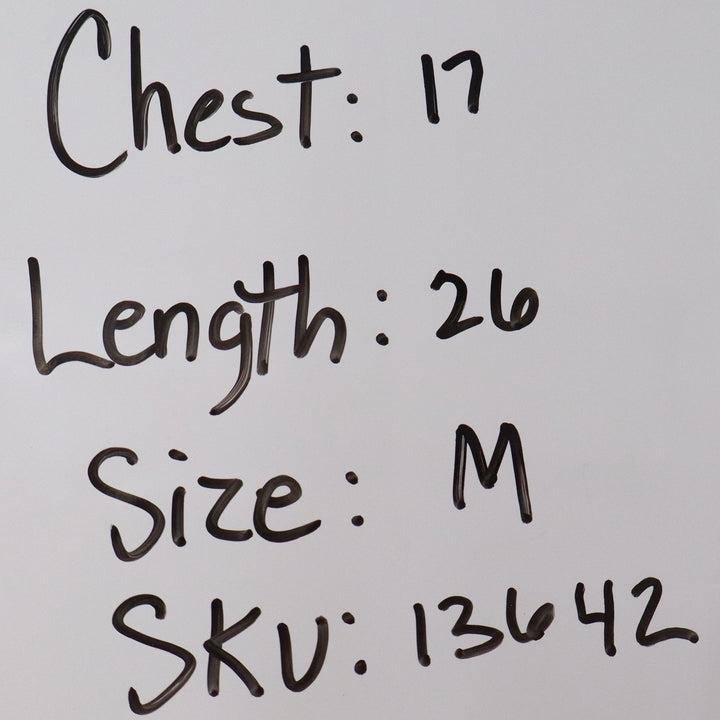 Chest: 17
Length: 26
Size: M
SKU: 13642